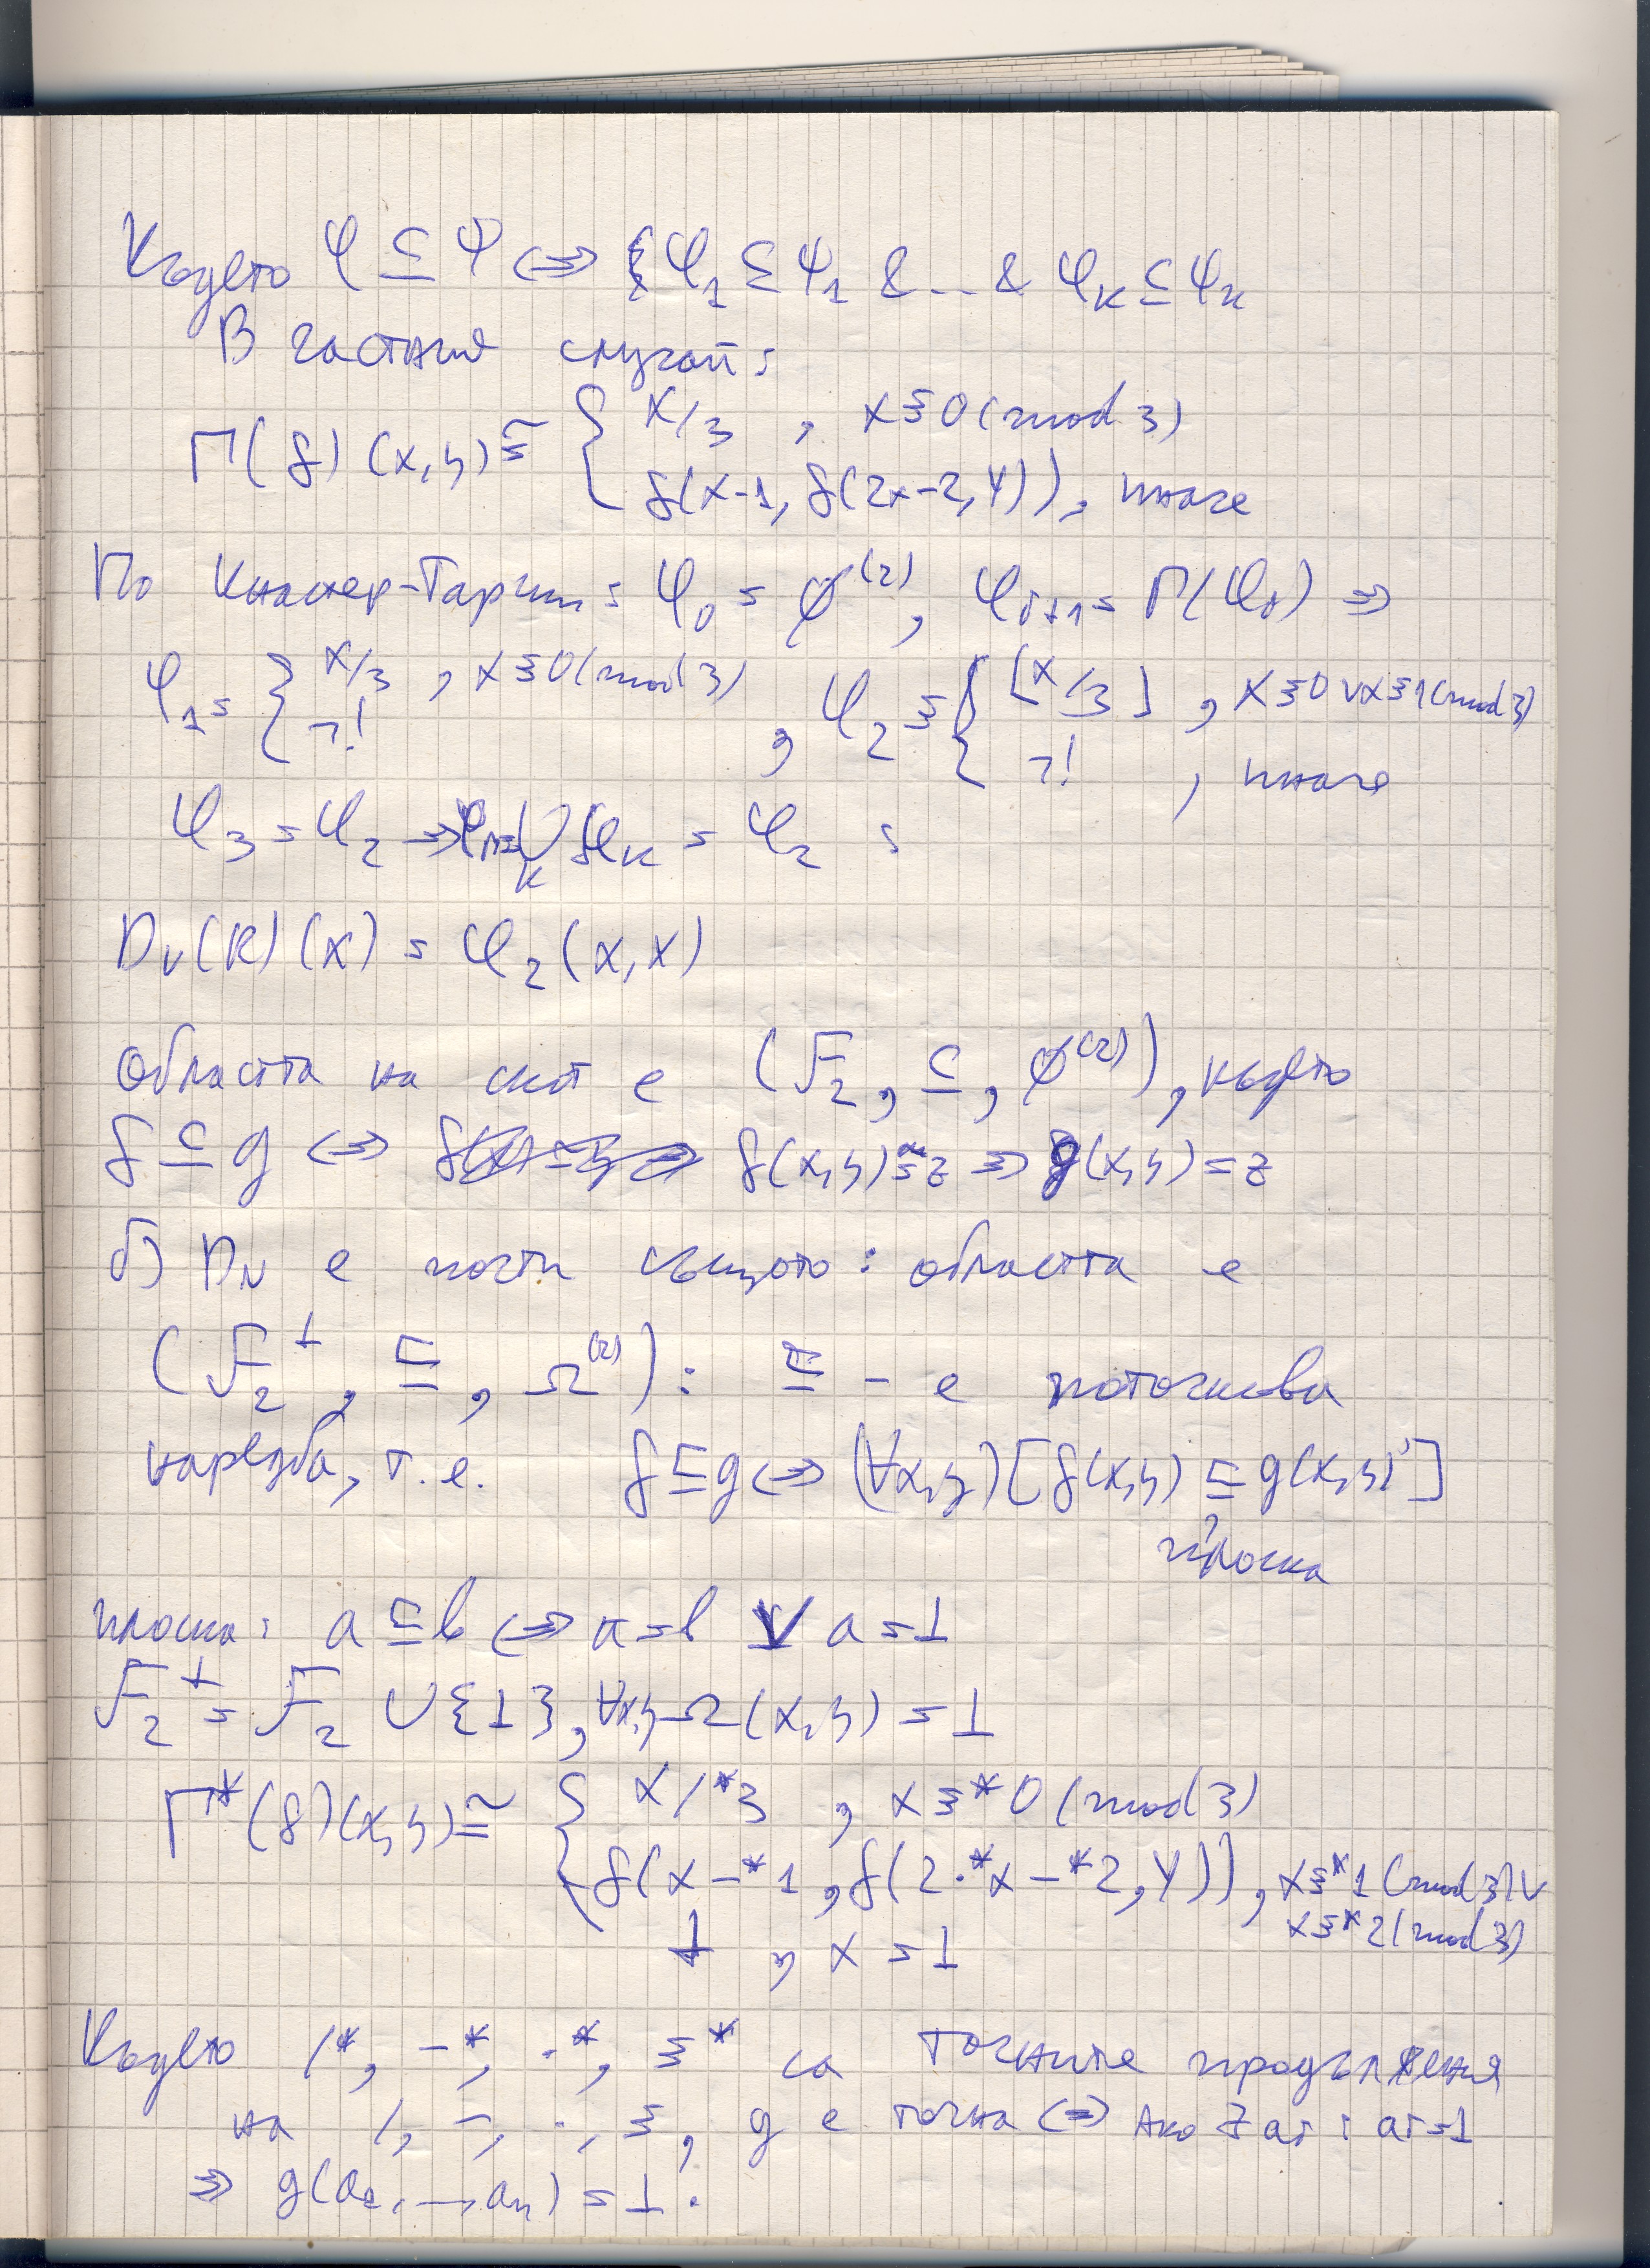 Където φ ⊆ ψ <=> φ₁ ⊆ ψ₁ & ... & φₖ ⊆ ψₖ
В частния случай:
Γ(f)(x,y) ≅ { x/3 , x≡0(mod 3)
f(x-1, f(2x-2,y)), иначе
По Кнастер-Тарски: φ₀ = ∅⁽²⁾, φᵢ₊₁ = Γ(φᵢ) =>
φ₁ = { x/3 , x≡0(mod 3) , φ₂ ≅ { [x/3] , x≡0 ∨ x≡1(mod 3)
¬! ¬! , иначе
φ₃ = φ₂ => ⋃ₖ φₖ = φ₂ :
D_V(R)(x) = φ₂(x,x)
Областта на скот е (F₂, ⊆, ∅⁽²⁾), където
f ⊆ g <=> f(x,y) ≅ z => g(x,y) = z
б) D_N е почти същото: областта е
(F₂^⊥, ⊑, Ω⁽²⁾): ⊑ - е поточкова
наредба, т.е. f ⊑ g <=> (∀x,y)[f(x,y) ⊑ g(x,y)]
плоска
плоска: a ⊑ b <=> a = b ∨ a = ⊥
F₂^⊥ = F₂ ∪ {⊥}, ∀x,y Ω(x,y) = ⊥
Γ*(f)(x,y) ≅ { x/*3 , x≡*0(mod 3)
f(x-*1, f(2.*x-*2,y)), x≡*1(mod 3)∨
x≡*2(mod 3)
⊥ , x = ⊥
Където /*, -*, .*, ≡* са точните продължения
на /, -, ., ≡, g е точна <=> Ако ∃ aᵢ : aᵢ=⊥
=> g(a₁,...,aₙ) = ⊥.